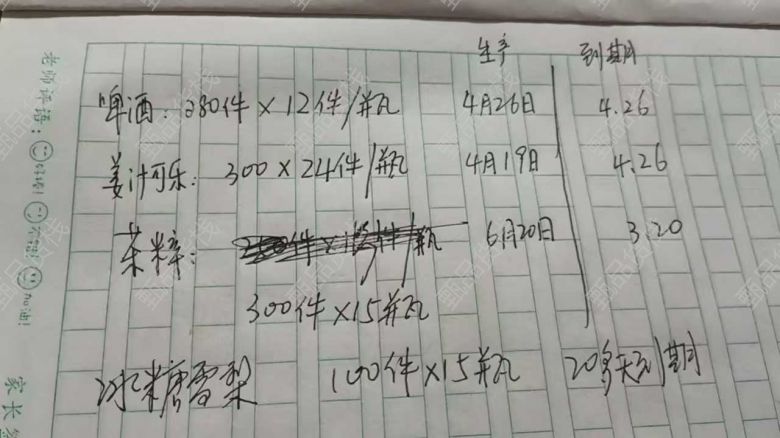 生产 到期
啤酒:280件×12件/瓶 4月26日 4.26
姜汁可乐: 300×24件/瓶 4月19日 4.26
茶粹: 6月20日 3.20
300件×15瓶
冰糖雪梨 100件×15瓶 20多天到期
老师评语: 好棒! 不错! 加油!
家长
甄品货栈